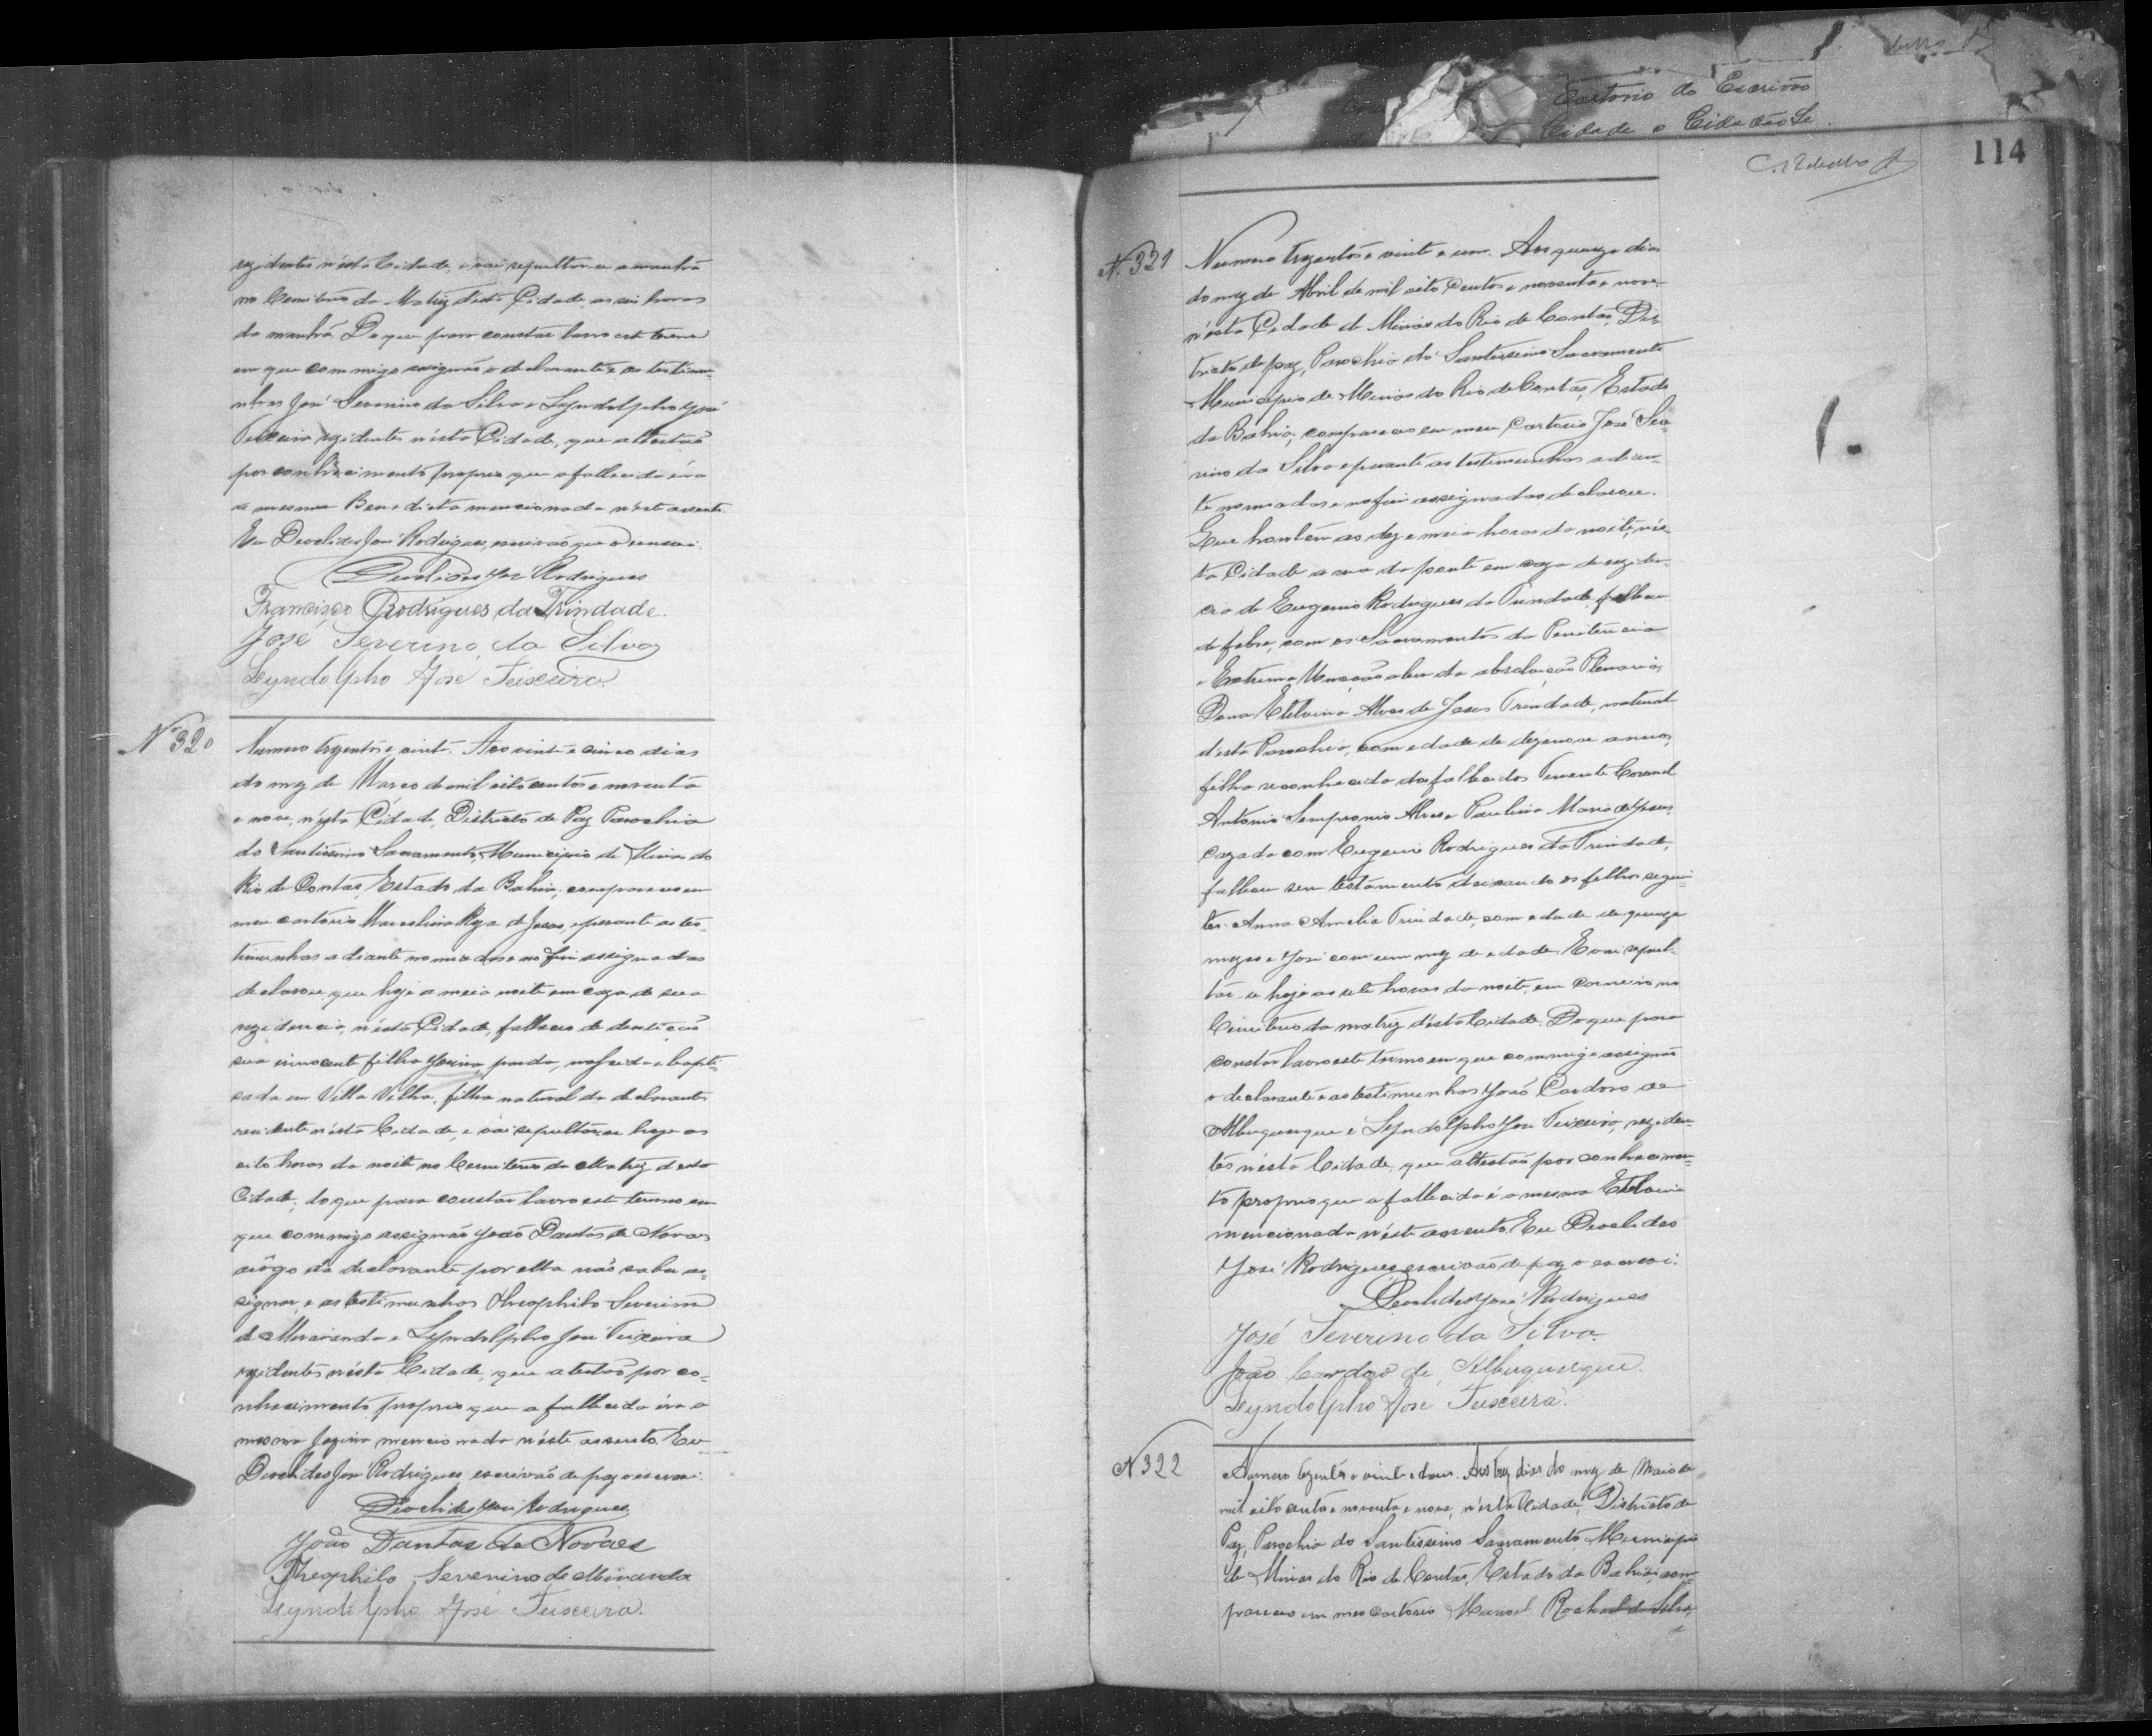 rezidentes n'ésta Cidade, e vai sepultar-se amanhã
no Cemiterio da Matriz desta Cidade as seis horas
da manhã Do que para constar lavro este termo
em que commigo assignão o declarante e as testimu-
nhas José Severino da Silva e Lyndolpho José
Teixeira rezidentes n'ésta Cidade, que attestão
por conhecimento proprio que a fallecida éra
a mesma Benedicta mencionada n'este assento.
Eu Deoclides José Rodrigues, escrivão que o escrevi.
Deoclides José Rodrigues
Francisco Rodrigues da Trindade.
José Severino da Silva
Lyndolpho José Teixeira.
N 320
Numero trezentos e vinte. Aos vinte e cinco dias
do mez de Março de mil oito centos e noventa
e nove, n'ésta Cidade, Districto de Paz Parochia
do Santissimo Sacramento, Municipio de Minas do
Rio de Contas, Estado da Bahia, compareceu em
meu cartorio Marcolina Roza de Jesus, e perante as tes-
timunhas adiante nomiadas e no fim assignadas
declarou que hoje a meia noite em caza de sua
rezidencia, n'ésta Cidade, falleceu de dentição
sua innocente filha parda, nascida e bapti-
sada em Villa Velha, filha natural da declarante,
rezidente n'ésta Cidade, e vai sepultar-se hoje as
oito horas da noite no Cemiterio da Matriz desta
Cidade; do que para constar lavro este termo em
que commigo assignão João Dantas de Novaes
arôgo da declarante por ella não saber as-
signar, e as testimunhas Theophilo Severino
de Miranda e Lyndolpho José Teixeira
rezidentes n'ésta Cidade, que atestão por co-
nhecimento proprio que a fallecida éra a
mesma mencionada n'éste assento. Eu
Deoclides José Rodrigues, escrivão de paz o escrevi.
Deoclides José Rodrigues
João Dantas de Novaes
Theophilo Severino de Miranda
Lyndolpho José Teixeira.
Cartorio do Escrivão
Cidade o Cidadão
114
N. 321
Numero trezentos e vinte e um. Aos quinze dias
do mez de Abril de mil oito centos e noventa e nove,
n'ésta Cidade de Minas do Rio de Contas, Dis-
tricto de paz, Parochia do Santissimo Sacramento
Municipio de Minas do Rio de Contas, Estado
da Bahia, compareceo em meu Cartorio José Seve-
rino da Silva e perante as testimunhas adian-
te nomiadas e no fim assignadas declarou.
Que hontem as dez e meia horas da noite, n'és-
ta Cidade a rua da ponte em caza de reziden-
cia de Eugenio Rodrigues da Trindade, falleceu
de febre, com os Sacramentos da Penitencia
e Extrema Uncção alem da absolvição Plenaria,
Dona Etelvina Alves de Jesus Trindade, natural
desta Parochia, com edade de dezenove annos,
filha reconhecida dos fallecidos Tenente Coronel
Antonio Sempronio Alves e Paulina Maria de Jesus,
cazada com Eugenio Rodrigues da Trindade,
falleceu sem testamento deixando os filhos seguin-
tes Anna Amelia Trindade, com edade de quinze
mezes e José com um mez de edade. E vai sepul-
tar-se hoje as sete horas da noite em carneiro no
Cimiterio da matriz d'ésta Cidade. Do que para
constar lavro este termo em que commigo assignão
o declarante e as testimunhas João Cardoso de
Albuquerque e Lyndolpho José Teixeira, reziden-
tes n'ésta Cidade, que attestão por conhecimen-
to proprio que a fallecida é a mesma Etelvina
mencionada n'éste assento. Eu Deoclides
José Rodrigues escrivão de paz o escrevi.
Deoclides José Rodrigues
José Severino da Silva.
João Cardoso de Albuquerque.
Lyndolpho José Teixeira.
N 322
Numero trezentos e vinte e dous. Aos trez dias do mez de Maio de
mil oito centos e noventa e nove, n'ésta Cidade, Districto de
Paz, Parochia do Santissimo Sacramento, Municipio
de Minas do Rio de Contas, Estado da Bahia, com-
pareceo em meo Cartorio Manoel Rocha da Silva,